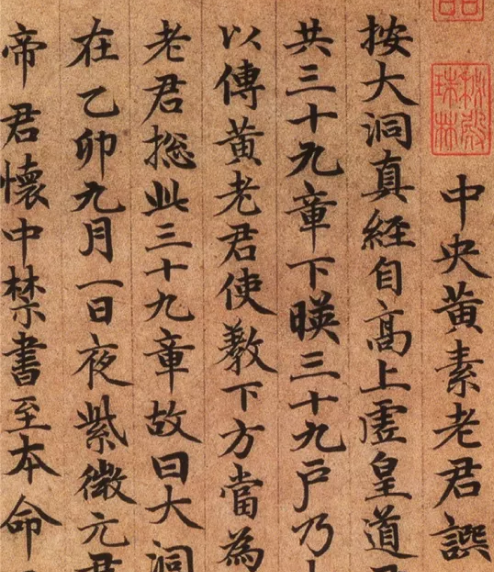 秘殿珠林
中央黃素老君譔
按大洞真經自高上虛皇道
共三十九章下暎三十九戶乃
以傳黃老君使教下方當為
老君揔此三十九章故曰大洞
在乙卯九月一日夜紫微元君
帝君懷中禁書至本命